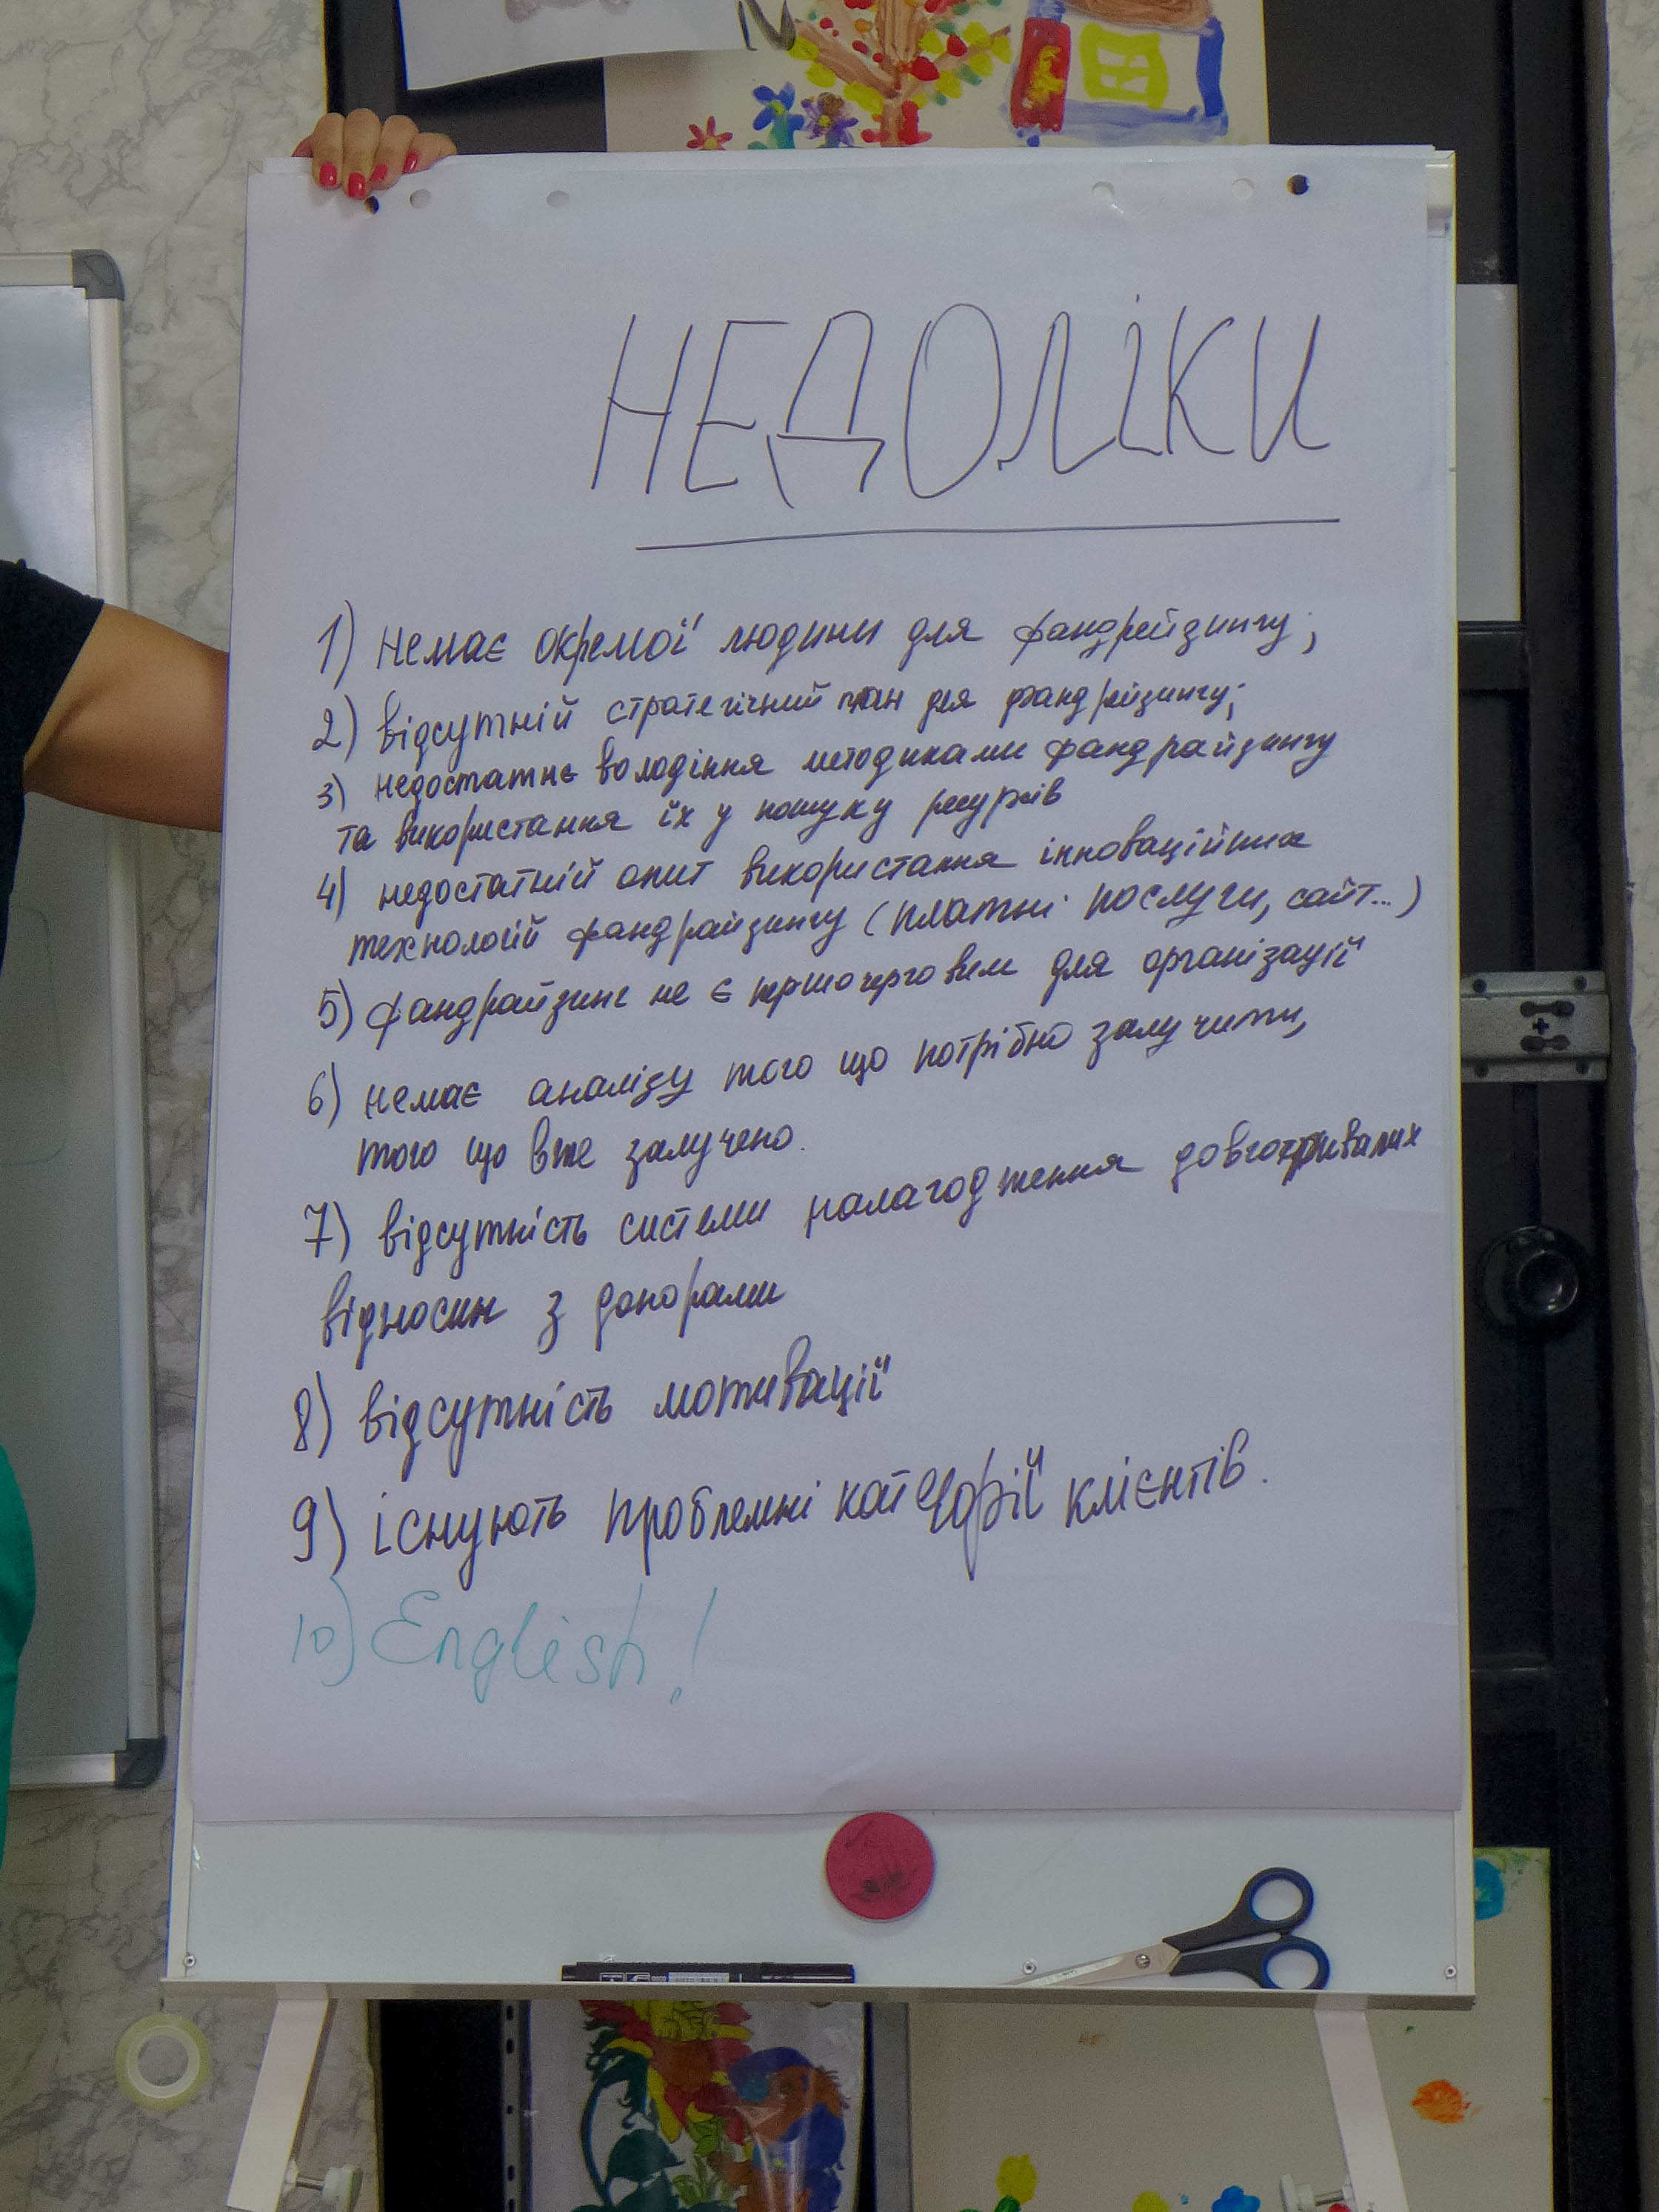 НЕДОЛІКИ
1) немає окремої людини для фандрейзингу;
2) відсутній стратегічний план для фандрейзингу;
3) недостатнє володіння методиками фандрайзингу
та використання їх у пошуку ресурсів
4) недостатній опит використання інноваційних
технологій фандрайзингу (платні послуги, сайт...)
5) фандрайзинг не є першочерговим для організації
6) немає аналізу того що потрібно залучити,
того що вже залучено.
7) відсутність системи налагодження довготривалих
відносин з донорами
8) відсутність мотивації
9) існують проблемні категорії клієнтів.
10) English!